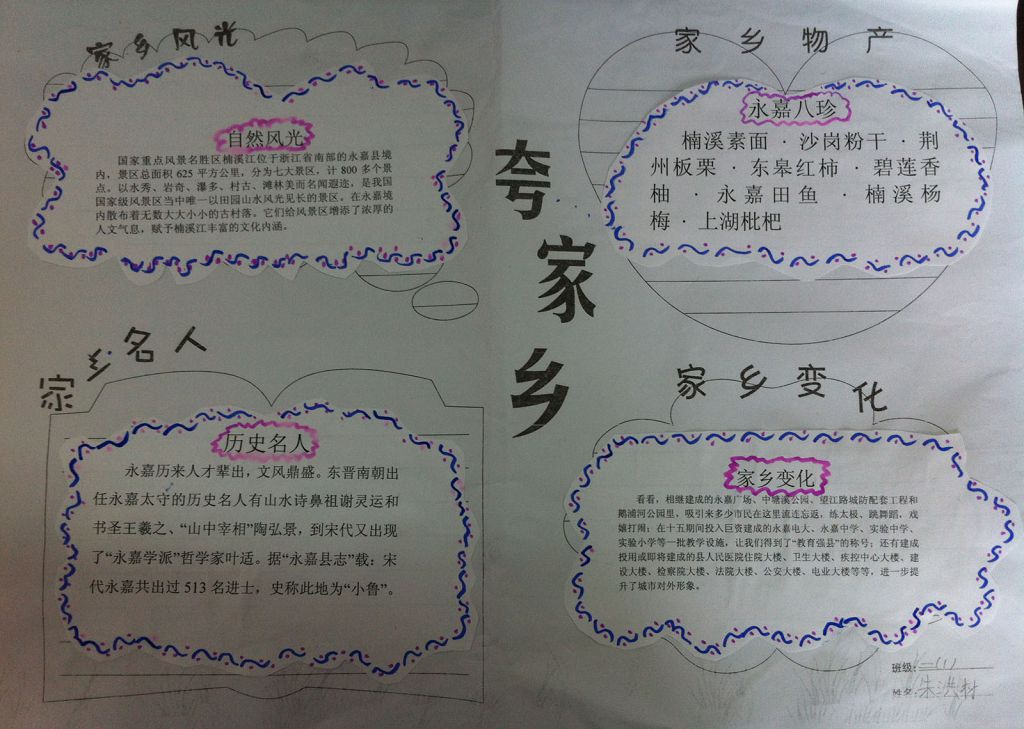 家乡风光
自然风光
国家重点风景名胜区楠溪江位于浙江省南部的永嘉县境
内，景区总面积 625 平方公里，分为七大景区，计 800 多个景
点。以水秀、岩奇、瀑多、村古、滩林美而名闻遐迩，是我国
国家级风景区当中唯一以田园山水风光见长的景区。在永嘉境
内散布着无数大大小小的古村落。它们给风景区增添了浓厚的
人文气息，赋予楠溪江丰富的文化内涵。
家乡物产
永嘉八珍
楠溪素面 · 沙岗粉干 · 荆
州板栗 · 东皋红柿 · 碧莲香
柚 · 永嘉田鱼 · 楠溪杨
梅 · 上湖枇杷
夸
家
乡
家乡名人
历史名人
永嘉历来人才辈出，文风鼎盛。东晋南朝出
任永嘉太守的历史名人有山水诗鼻祖谢灵运和
书圣王羲之、“山中宰相”陶弘景，到宋代又出现
了“永嘉学派”哲学家叶适。据“永嘉县志”载：宋
代永嘉共出过 513 名进士，史称此地为“小鲁”。
家乡变化
家乡变化
看看，相继建成的永嘉广场、中塘溪公园、望江路城防配套工程和
鹅浦河公园里，吸引来多少市民在这里流连忘返，练太极、跳舞蹈、戏
嬉打闹；在十五期间投入巨资建成的永嘉电大、永嘉中学、实验中学、
实验小学等一批教学设施，让我们得到了“教育强县”的称号；还有建成
投用或即将建成的县人民医院住院大楼、卫生大楼、疾控中心大楼、建
设大楼、检察院大楼、法院大楼、公安大楼、电业大楼等等，进一步提
升了城市对外形象。
班级：二（1）
姓名：朱洪材